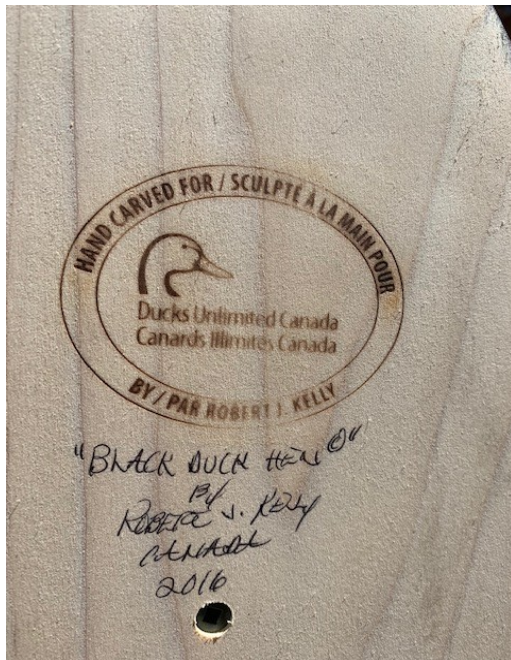 HAND CARVED FOR / SCULPTÉ À LA MAIN POUR
Ducks Unlimited Canada
Canards Illimités Canada
BY / PAR ROBERT J. KELLY
"BLACK DUCK HEN ©"
BY
ROBERT J. KELLY
CANADA
2016